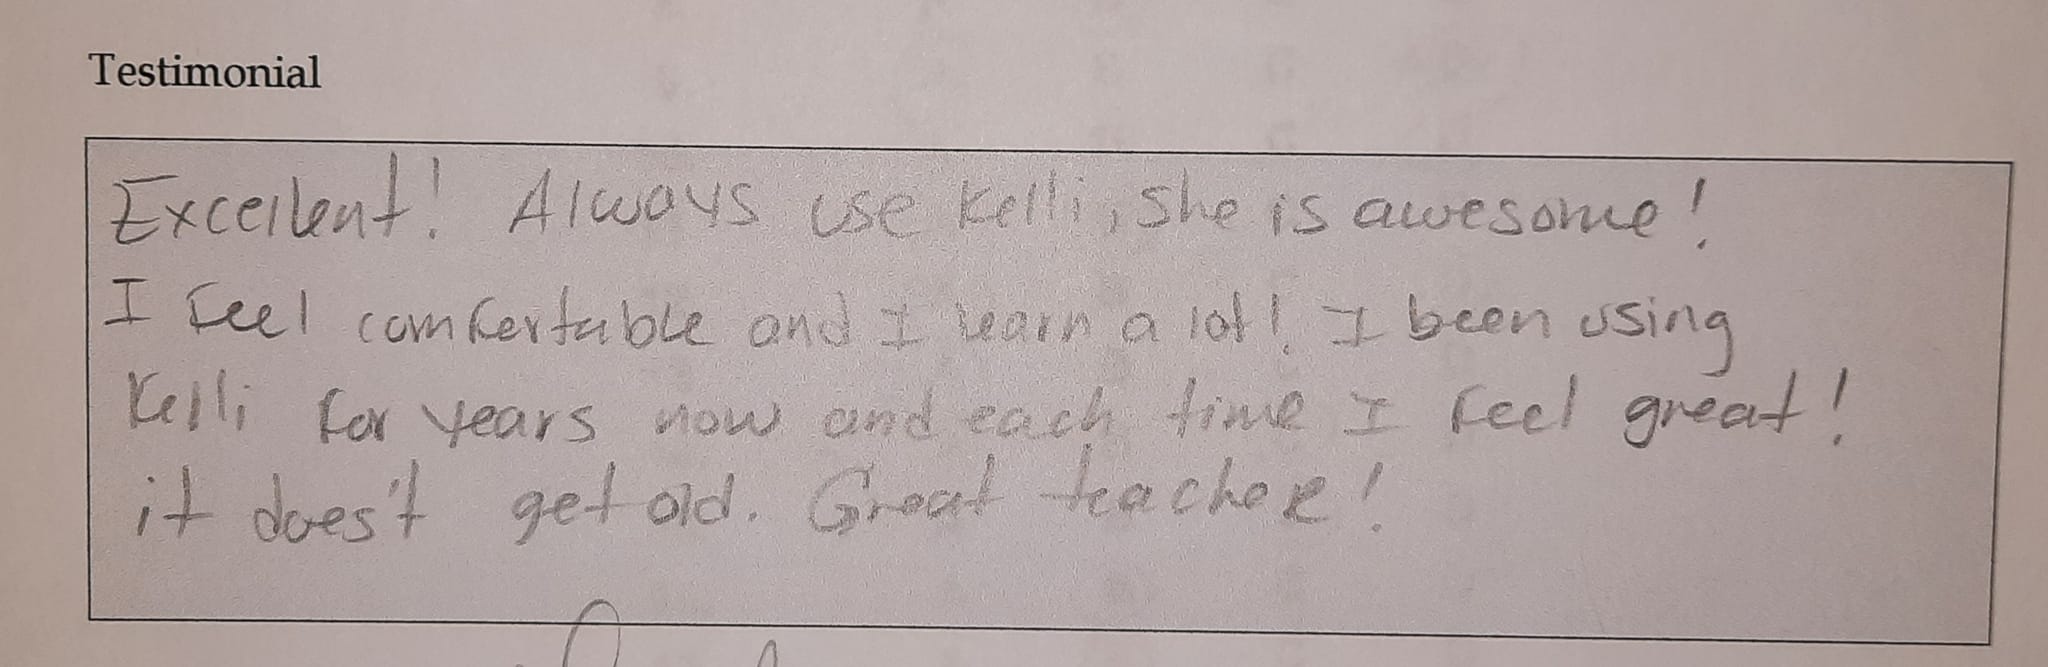 Testimonial
Excellent! Always use Kelli, she is awesome!
I feel comfertable and I learn a lot! I been using
Kelli for years now and each time I feel great!
it does't get old. Great teacher!